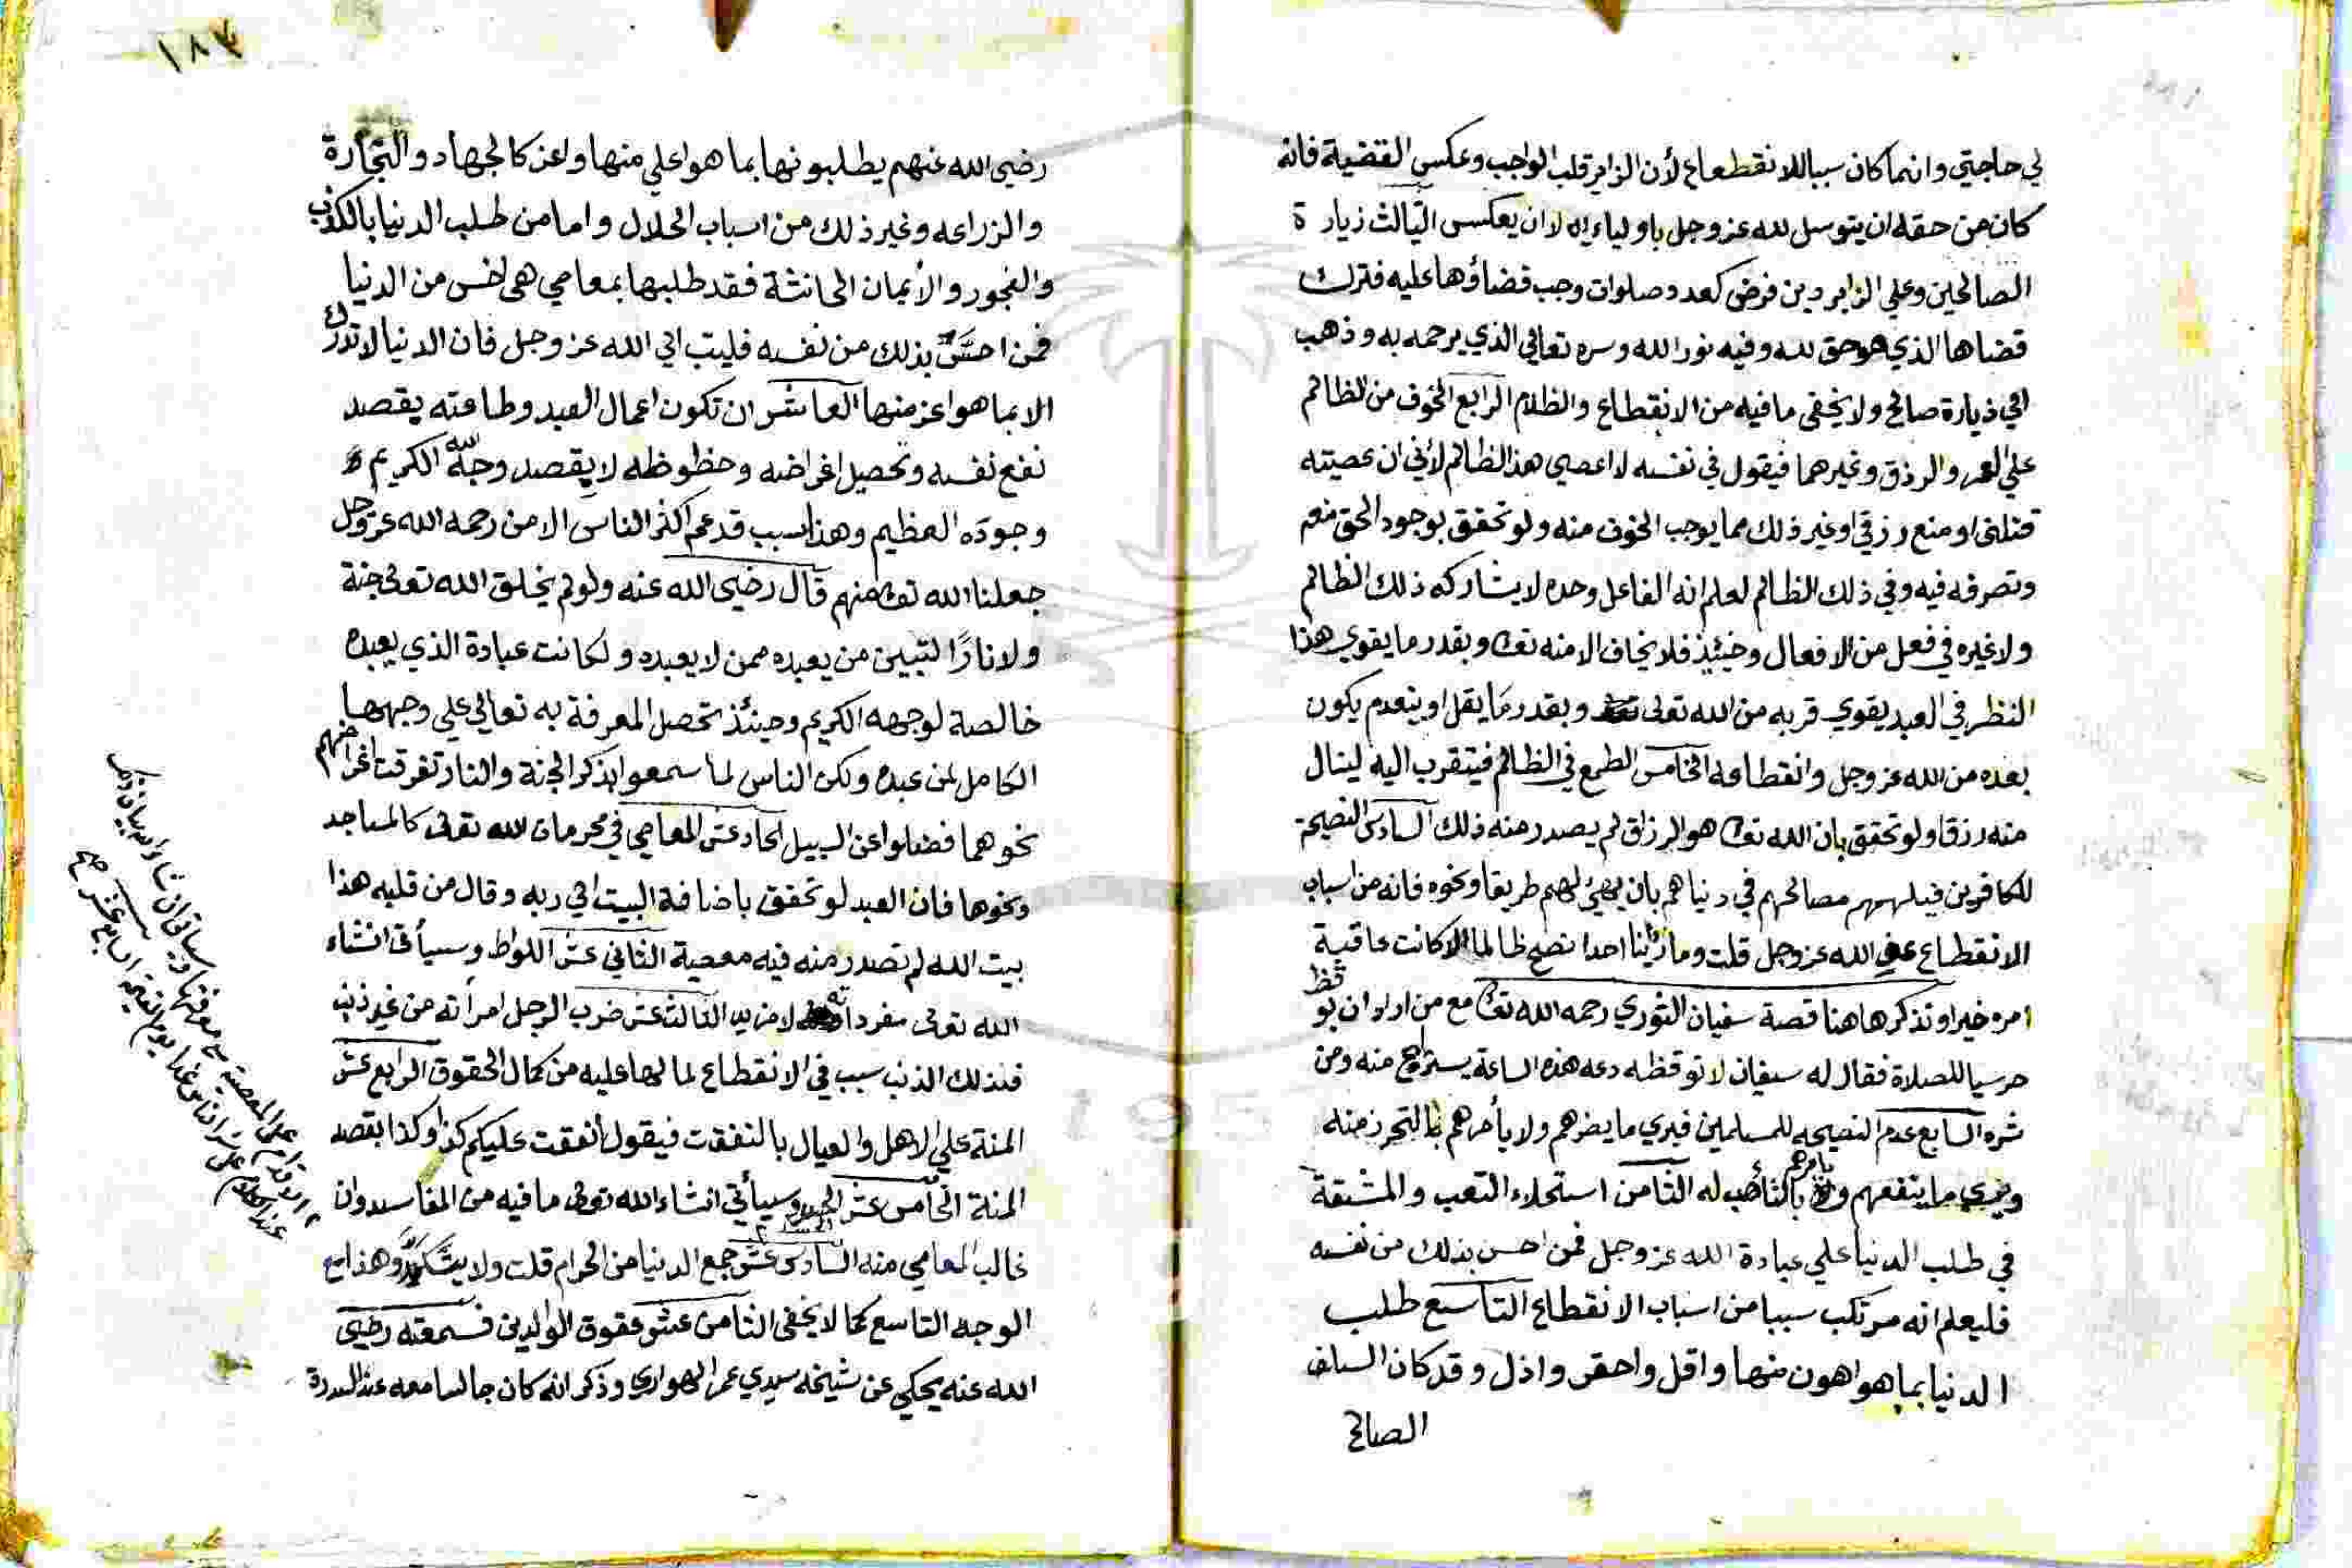 لي حاجتي وانما كان سببا للانقطاع لأن الزاير قلب الواجب وعكس القضية فانه
كان من حقه ان يتوسل لله عز وجل باوليائه لا ان يعكس الثالث زيارة
الصالحين وعلي الزاير دين فرض كعدد صلوات وجب قضاؤها عليه فترك
قضاها الذي هو حق لله وفيه نور الله وسره تعالي الذي يرحمه به وذهب
الي زيارة صالح ولا يخفى ما فيه من الانقطاع والظلام الرابع الخوف من الظالم
علي العمر والرزق وغيرهما فيقول في نفسه لا اعصي هذا الظالم لأني ان عصيته
قتلنى او منع رزقي او غير ذلك مما يوجب الخوف منه ولو تحقق بوجود الحق معه
وتصرفه فيه وفي ذلك الظالم لعلم انه الفاعل وحده لا يشاركه ذلك الظالم
ولا غيره في فعل من الافعال وحينئذ فلا يخاف الا منه تعا وبقدر ما يقوي هذا
النظر في العبد يقوي قربه من الله تعلى وبقدر ما يقل او ينعدم يكون
بعده من الله عز وجل وانقطاعه الخامس الطمع في الظالم فيتقرب اليه لينال
منه رزقا ولو تحقق بان الله تعا هو الرزاق لم يصدر منه ذلك السادس النصيحة
للكافرين فيلهمهم مصالحهم في دنياهم بان يهيئ لهم طريقا ونحوه فانه من اسباب
الانقطاع عن الله عز وجل قلت وما رأينا احدا نصح ظالما الا كانت عاقبة
امره خيرا وتذكر هاهنا قصة سفيان الثوري رحمه الله تعا مع من اراد ان يوقظ
حرسيا للصلاة فقال له سفيان لا توقظه دعه هذه الساعة يستراح منه ومن
شره السابع عدم النصيحه للمسلمين فيري ما يضرهم ولا يأمرهم بالتحرز منه
ويري ما ينفعهم ولا يامرهم بالتأهب له الثامن استحلاء التعب والمشقة
في طلب الدنيا علي عبادة الله عز وجل فمن احس بذلك من نفسه
فليعلم انه مرتكب سببا من اسباب الانقطاع التاسع طلب
الدنيا بما هو اهون منها واقل واحقر واذل وقد كان السلف
الصالح
١٨٧
رضي الله عنهم يطلبونها بما هو اعلي منها واعز كالجهاد والتجارة
والزراعه وغير ذلك من اسباب الحلال واما من طلب الدنيا بالكذب
والفجور والأيمان الحانثة فقد طلبها بمعاصي هي اخس من الدنيا
فمن احسّ بذلك من نفسه فليتب الي الله عز وجل فان الدنيا لا تدرك
الا بما هو اعز منها العاشر ان تكون اعمال العبد وطاعته يقصد
نفع نفسه وتحصيل اغراضه وحظوظه لا يقصد وجه الله الكريم
وجوده العظيم وهذا السبب قد عم اكثر الناس الا من رحمه الله عز وجل
جعلنا الله تعا منهم قال رضي الله عنه ولو لم يخلق الله تعلى جنة
ولا نارًا لتبين من يعبده ممن لا يعبده ولكانت عبادة الذي يعبده
خالصة لوجهه الكريم وحينئذ تحصل المعرفة به تعالي علي وجهها
الكامل لمن عبده ولكن الناس لما سمعوا بذكر الجنة والنار تفرقت اغراضهم
نحوهما فضلوا عن السبيل الحاد عشر المعاصي في محرمات الله تعلى كالمساجد
ونحوها فان العبد لو تحقق باضافة البيت الي ربه وقال من قلبه هذا
بيت الله لم تصدر منه فيه معصية الثاني عشر اللواط وسيأتى انشاء
الله تعلى مفردا لا مزيد الثالث عشر ضرب الرجل امرأته من غير ذنب
فلذلك الذنب سبب في الانقطاع لما لها عليه من كمال الحقوق الرابع عشر
المنة علي الاهل والعيال بالنفقت فيقول انفقت عليكم كذا وكذا بقصد
المنة الخامس عشر الحسد وسيأتي انشاء الله تعلى ما فيه من المفاسد وان
غالب المعاصي منه السادس عشر جمع الدنيا من الحرام قلت ولا يتكرر وهذا مع
الوجه التاسع كما لا يخفى الثامن عشر عقوق الوالدين فسمعته رضي
الله عنه يحكي عن شيخه سيدي عمر الهواري وذكر انه كان جالسا معه عند السدرة
الاقدام على المعصية مع معرفتها وسياتى ان شاء الله بيان ذلك
السابع عشر صح